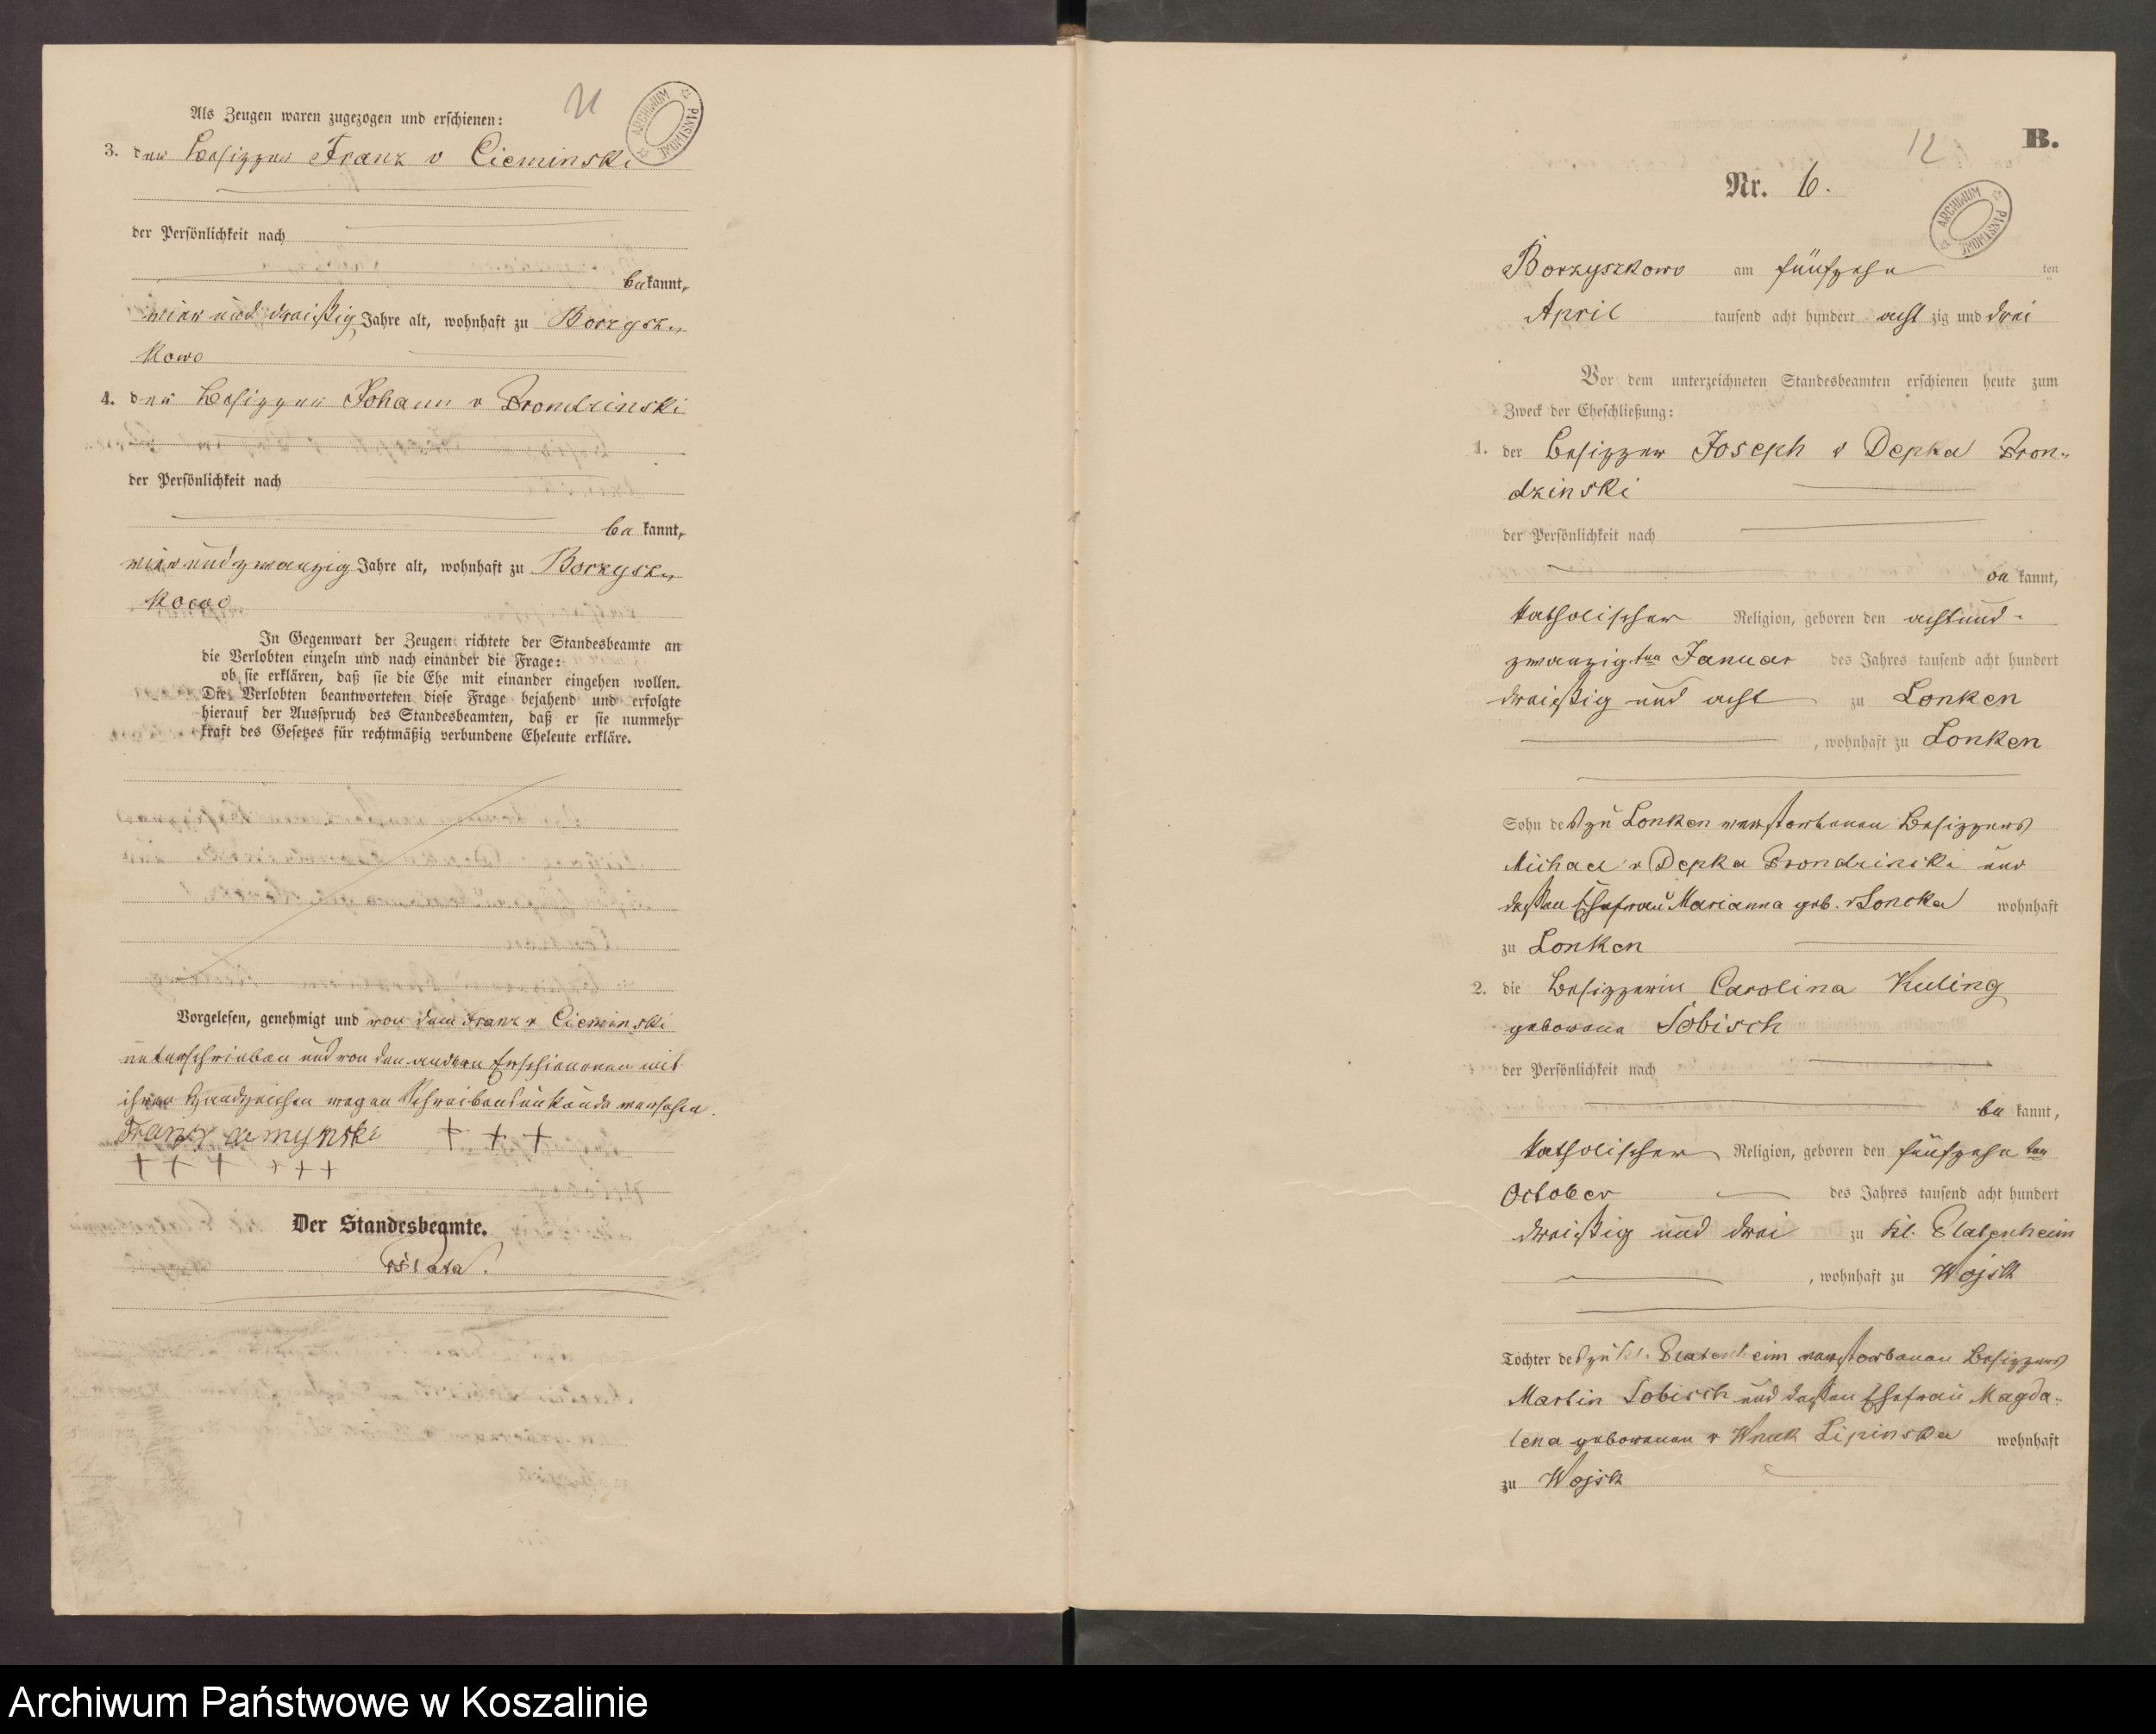 11
Als Zeugen waren zugezogen und erschienen:
3. der Besitzer Franz v Cieminski
ARCHIWUM PAŃSTWOWE
der Persönlichkeit nach
be kannt,
vier und dreißig Jahre alt, wohnhaft zu Borzysz-
kowo
4. der Besitzer Johann v Prondzinski
der Persönlichkeit nach
be kannt,
vier und zwanzig Jahre alt, wohnhaft zu Borzysz-
kowo
In Gegenwart der Zeugen richtete der Standesbeamte an
die Verlobten einzeln und nach einander die Frage:
ob sie erklären, daß sie die Ehe mit einander eingehen wollen.
Die Verlobten beantworteten diese Frage bejahend und erfolgte
hierauf der Ausspruch des Standesbeamten, daß er sie nunmehr
kraft des Gesetzes für rechtmäßig verbundene Eheleute erkläre.
Vorgelesen, genehmigt und von dem Franz v Cieminski
unterschrieben und von den andern Erschienenen mit
ihren Handzeichen wegen Schreibensunkunde versehen.
Franz + + +
+ + + + + +
Der Standesbeamte.
12
B.
Nr. 6.
ARCHIWUM PAŃSTWOWE
Borzyszkowo am fünfzehn ten
April tausend acht hundert acht zig und drei
Vor dem unterzeichneten Standesbeamten erschienen heute zum
Zweck der Eheschließung:
1. der Besitzer Joseph v Depka Pron-
dzinski
der Persönlichkeit nach
be kannt,
katholischer Religion, geboren den achtund-
zwanzigten Januar des Jahres tausend acht hundert
dreißig und acht zu Lonken
, wohnhaft zu Lonken
Sohn des zu Lonken verstorbenen Besitzers
Michael v Depka Prondzinski und
dessen Ehefrau Marianna geb. v Loncka wohnhaft
zu Lonken
2. die Besitzerin Carolina Kuling
geborene Sobisch
der Persönlichkeit nach
be kannt,
katholischer Religion, geboren den fünfzehn ten
October des Jahres tausend acht hundert
dreißig und drei zu Kl. Platenheim
, wohnhaft zu Wojsk
Tochter des zu Kl. Platenheim verstorbenen Besitzers
Martin Sobisch und dessen Ehefrau Magda-
lena geborenen v Wnuk Lipinska wohnhaft
zu Wojsk
Archiwum Państwowe w Koszalinie